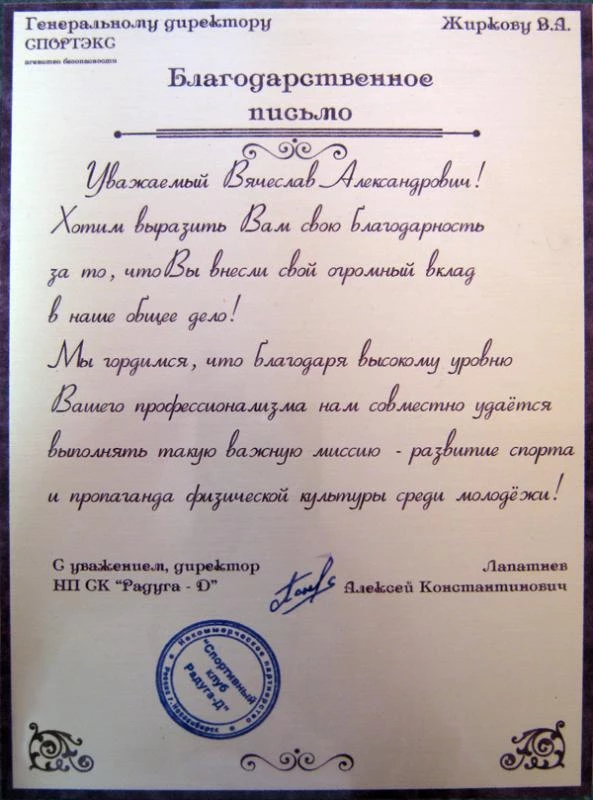 Генеральному директору Жиркову В.А.
СПОРТЭКС
агентство безопасности
Благодарственное
письмо
Уважаемый Вячеслав Александрович!
Хотим выразить Вам свою благодарность
за то, что Вы внесли свой огромный вклад
в наше общее дело!
Мы гордимся, что благодаря высокому уровню
Вашего профессионализма нам совместно удаётся
выполнять такую важную миссию - развитие спорта
и пропаганда физической культуры среди молодёжи!
С уважением, директор Лапатнев
НП СК "Радуга - Д" Алексей Константинович
Некоммерческое партнерство
Россия г. Новосибирск
"Спортивный
клуб
Радуга-Д"